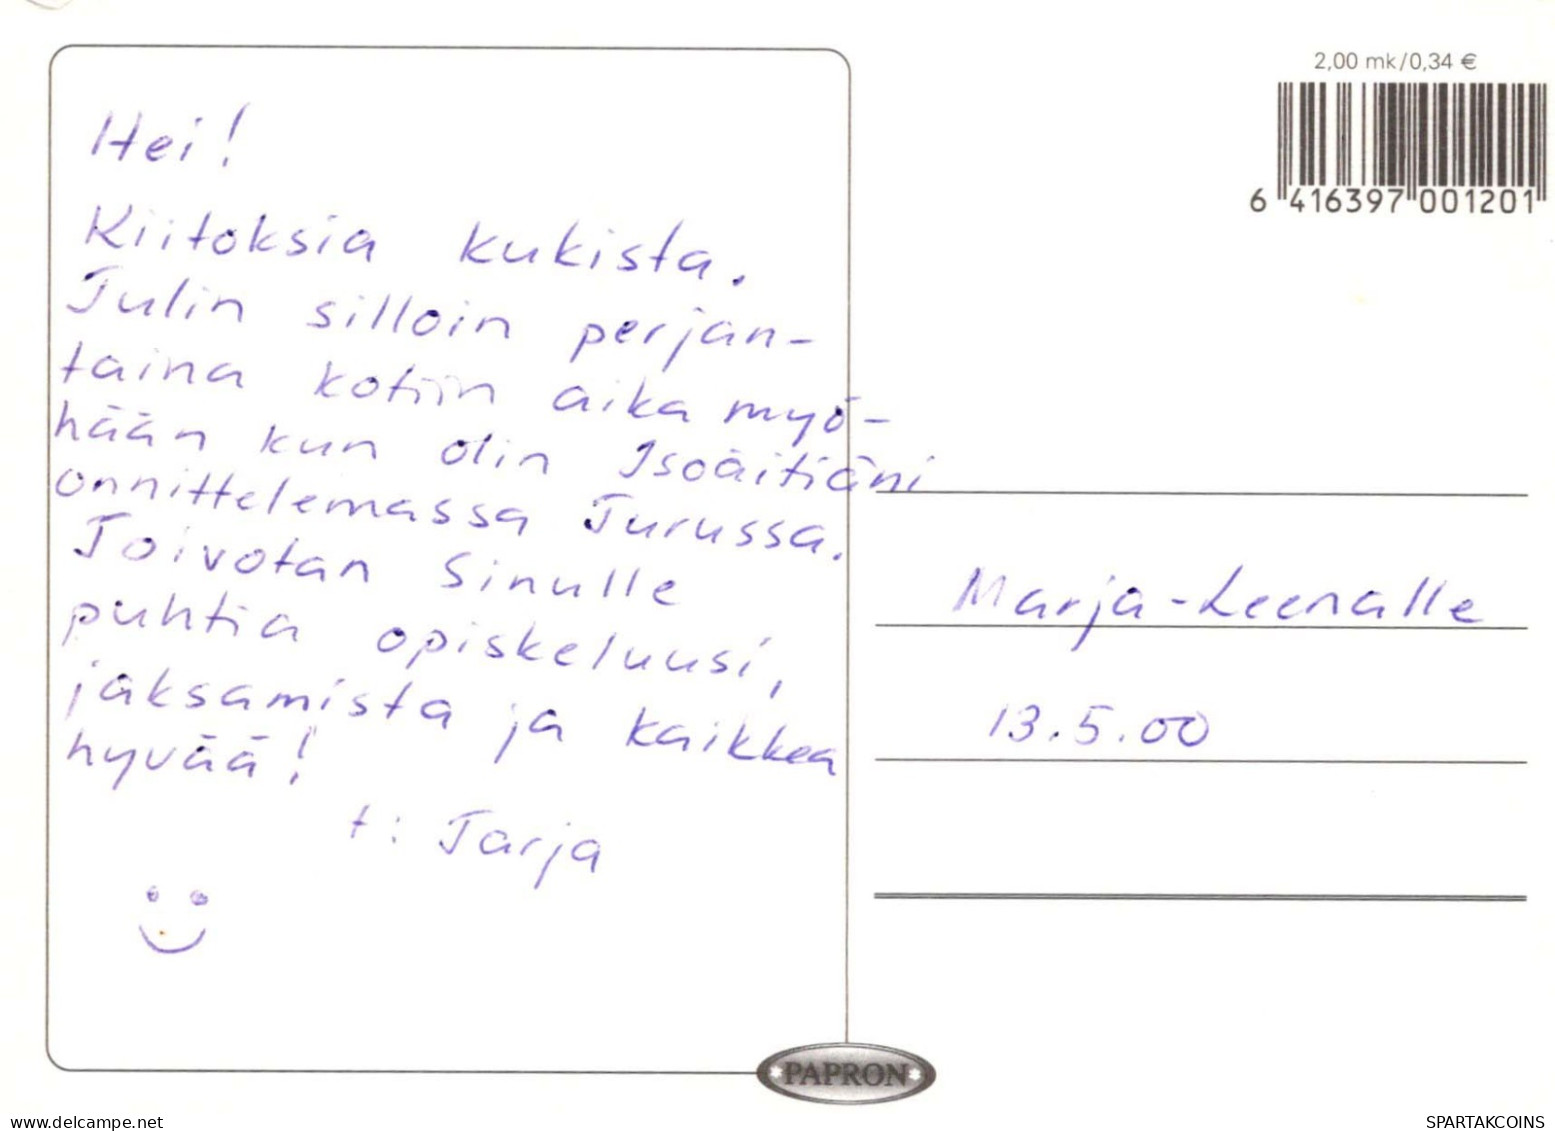 Hei!
Kiitoksia kukista.
Tulin silloin perjan-
taina kotiin aika myö-
hään kun olin Isoäitiäni
onnittelemassa Turussa.
Toivotan Sinulle
puhtia opiskeluusi,
jaksamista ja kaikkea
hyvää!
t: Tarja
2,00 mk/0,34 €
6 416397 001201
Marja-Leenalle
13.5.00
PAPRON
hipostcard.net
SPARTAKCOINS